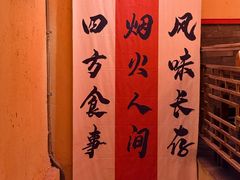 风味长存
烟火人间
四方食事